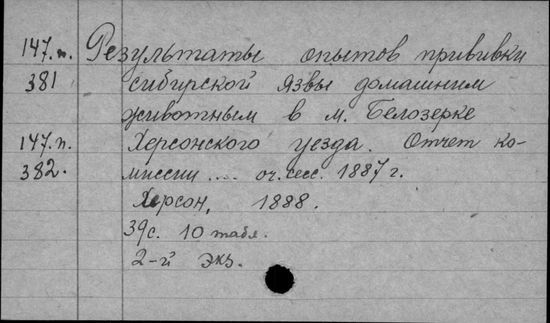 147.п. Результаты опытов прививки
381 сибирской язвы домашним
животным в м. Белозерке
147.п. Херсонского уезда. Отчет ко-
382. миссии .... оч. сесс. 1887 г.
Херсон, 1888.
39с. 10 табл.
2-й экз.